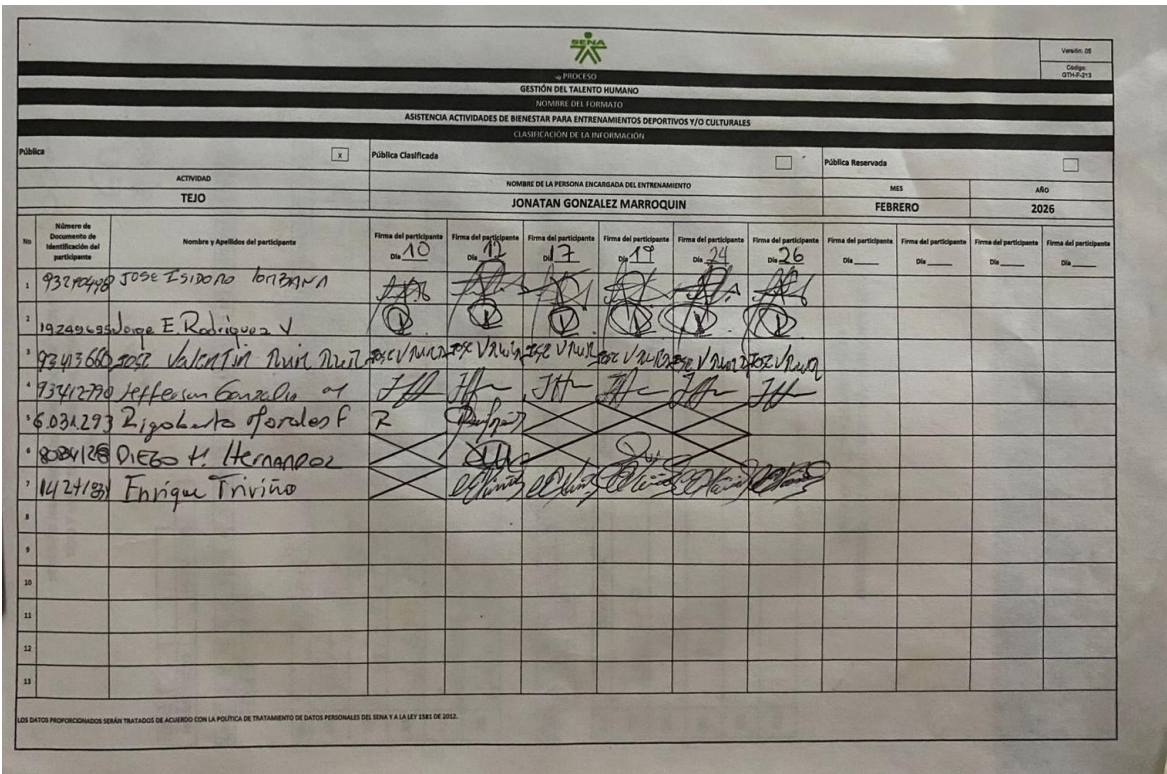 SENA
Versión: 05
Código:
GTH-F-213
PROCESO
GESTIÓN DEL TALENTO HUMANO
NOMBRE DEL FORMATO
ASISTENCIA ACTIVIDADES DE BIENESTAR PARA ENTRENAMIENTOS DEPORTIVOS Y/O CULTURALES
CLASIFICACIÓN DE LA INFORMACIÓN
Pública x Pública Clasificada Pública Reservada
ACTIVIDAD NOMBRE DE LA PERSONA ENCARGADA DEL ENTRENAMIENTO MES AÑO
TEJO JONATAN GONZALEZ MARROQUIN FEBRERO 2026
No Número de Documento de Identificación del participante Nombre y Apellidos del participante Firma del participante Firma del participante Firma del participante Firma del participante Firma del participante Firma del participante Firma del participante Firma del participante Firma del participante Firma del participante
Día 10 Día 12 Día 17 Día 19 Día 24 Día 26 Día Día Día Día
1 JOSE ISIDORO
2 19249695 Jorge E. Rodriguez V
3 93413660 Jose Valentin Ruiz Ruiz Jose V Ruiz Jose V Ruiz Jose V Ruiz Jose V Ruiz Jose V Ruiz Jose V Ruiz
4 93412790 Jefferson
5 6.031.293 Rigoberto Morales F R
6 DIEZO H. HERNANDEZ
7 Enrique Triviño
8
9
10
11
12
13
LOS DATOS PROPORCIONADOS SERÁN TRATADOS DE ACUERDO CON LA POLÍTICA DE TRATAMIENTO DE DATOS PERSONALES DEL SENA Y A LA LEY 1581 DE 2012.